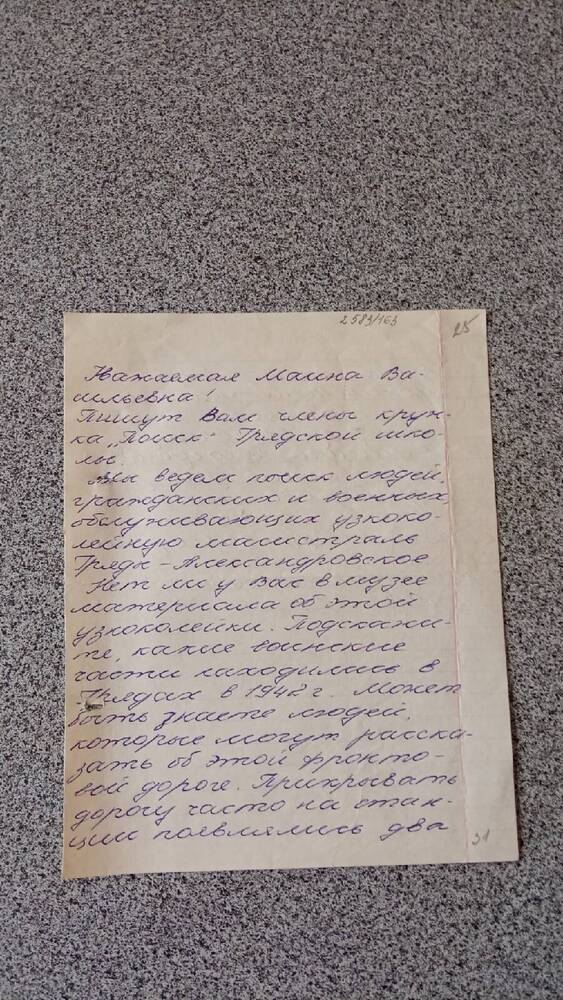 2583/163
25
Уважаемая Маина Ва-
сильевна!
Пишут Вам члены круж-
ка „Поиск" Грядской шко-
лы.
Мы ведем поиск людей,
гражданских и военных
обслуживающих узкоко-
лейную магистраль
Гряды - Александровское
Нет ли у Вас в музее
материала об этой
узкоколейки. Подскажи-
те, какие воинские
части находились в
Грядах в 1942 г. Может
быть знаете людей,
которые могут расска-
зать об этой фронто-
вой дороге. Прикрывать
дорогу часто на стан-
ции появлялись два
31